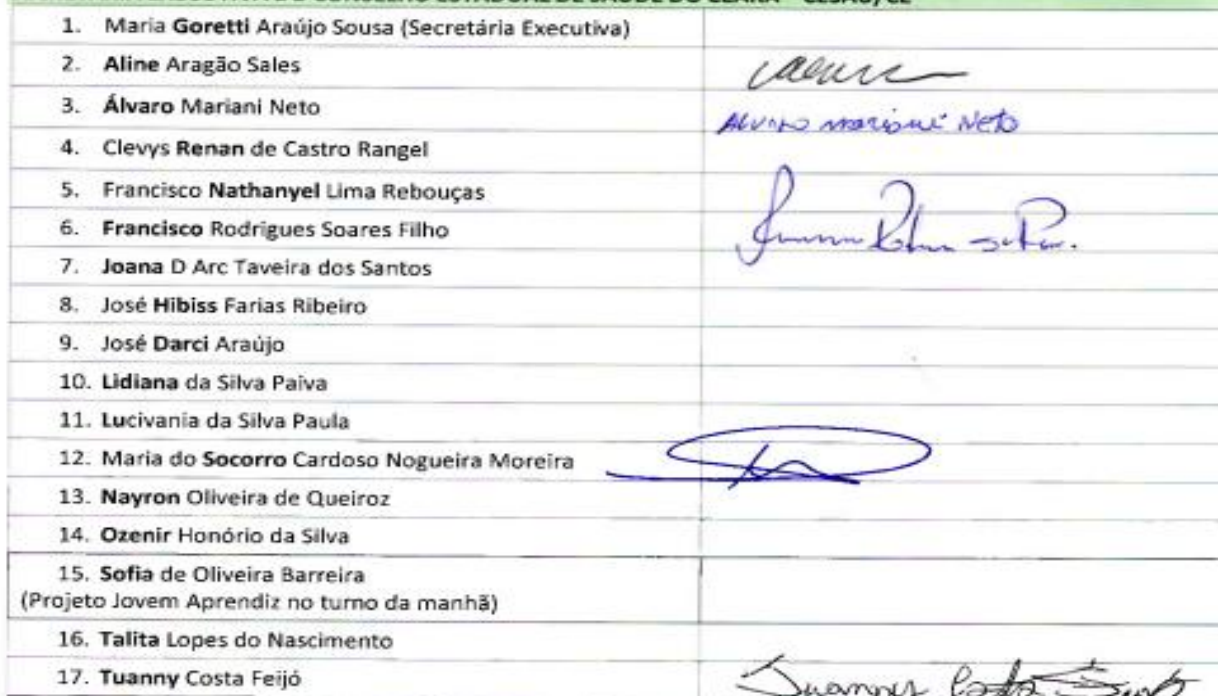 CONSELHO ESTADUAL DE SAÚDE DO CEARÁ - CESAU/CE
1. Maria Goretti Araújo Sousa (Secretária Executiva)
2. Aline Aragão Sales
3. Álvaro Mariani Neto
Alvaro Mariani Neto
4. Clevys Renan de Castro Rangel
5. Francisco Nathanyel Lima Rebouças
6. Francisco Rodrigues Soares Filho
7. Joana D Arc Taveira dos Santos
8. José Hibiss Farias Ribeiro
9. José Darci Araújo
10. Lidiana da Silva Paiva
11. Lucivania da Silva Paula
12. Maria do Socorro Cardoso Nogueira Moreira
13. Nayron Oliveira de Queiroz
14. Ozenir Honório da Silva
15. Sofia de Oliveira Barreira
(Projeto Jovem Aprendiz no turno da manhã)
16. Talita Lopes do Nascimento
17. Tuanny Costa Feijó
Tuanny Costa